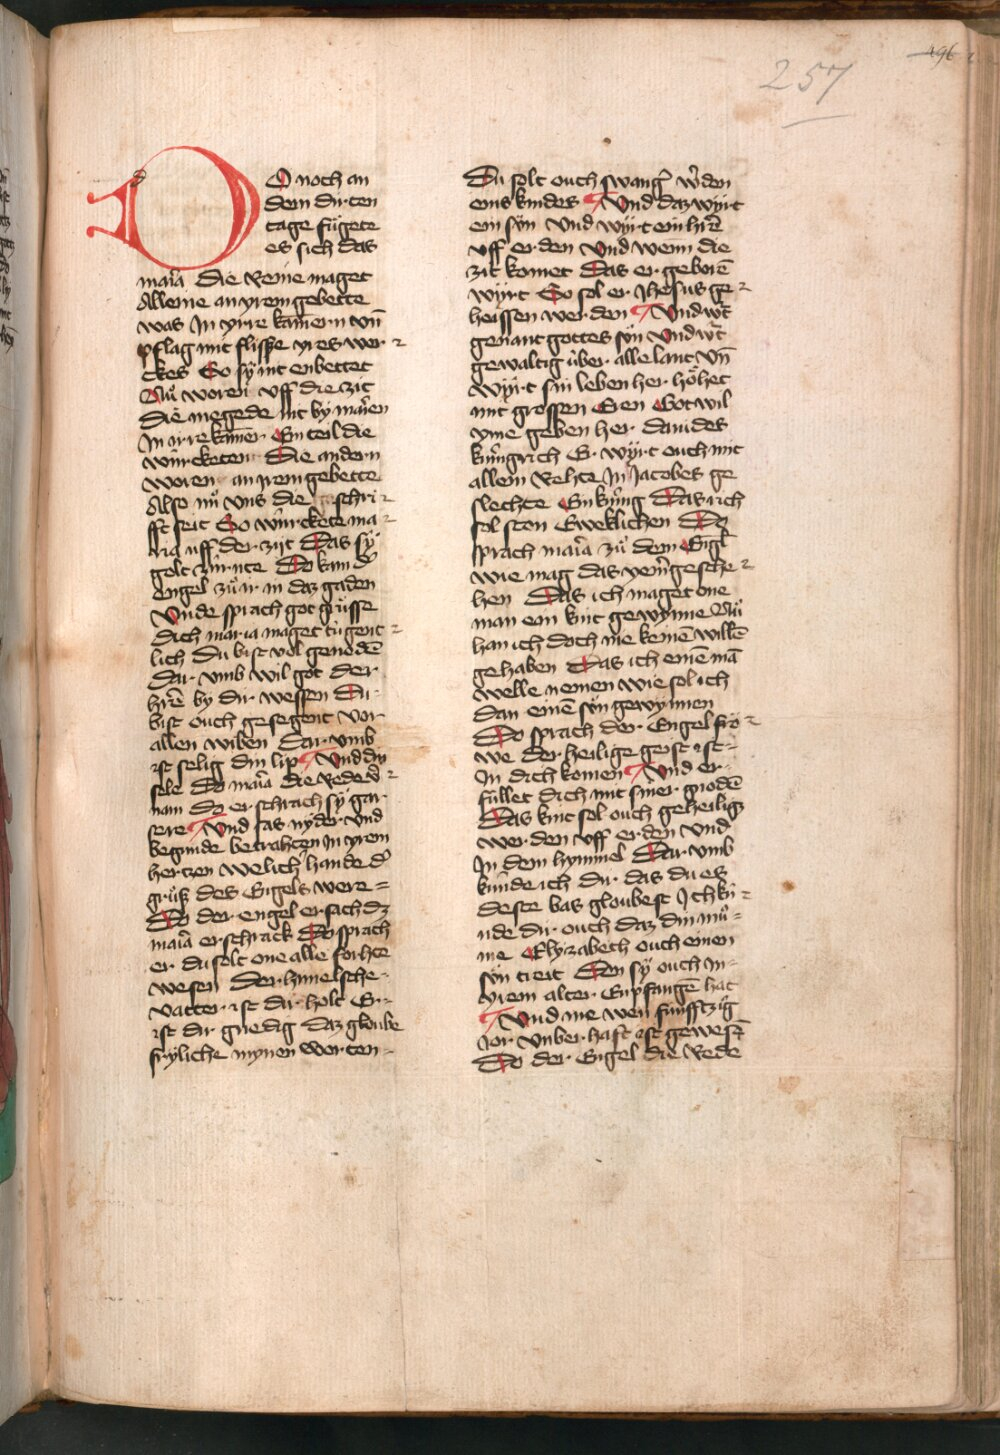 257
196
DO noch an
dem dirten
tage fügete
es sich das
maria die Reine maget
Alleine an yrem gebette
was In yrre kamern vn̄
pflag mit flisse yres wer
ckes So sÿ nit enbettet
Nů woren vff die zit
Die megede mit by marien
In irre kam̄er Ein teil die
würcketen Die andern
woren an irem gebette
Also nů vns die schri
fft seit So würckete ma
ria uff der zijt Das sÿ
golt zůr nte Do kam d̓
engel zů ir in daz gaden
Vnde sprach got grüsse
dich maria maget tugent
lich Du bist vol genodē
Dar vmb wil got der
hrē by dir wessen Du
bist ouch gesegent vor
allen wiben Dar vmb
ist selig din lip Vnd din
sele Do maria die Rede v̓
nam do er schrach sÿ gar
sere Vnd sas nyder vnd
begunde betrahten In yrem
hertzen welich hande d̓
gruß des Engels were
Do der engel ersach dz
maria erschrack Do sprach
er du solt one alle forhte
wesen Der himelsche
vatter ist dir holt Er
ist dir gnedig daz gloube
fryliche mynen worten
Du solt ouch swang̓ w̓den
eins kindes Vnd daz wÿrt
ein sÿn vnd wÿrt ein hrē
vff erden Vnd wenn die
zit komet Das er geborē
wÿrt So sol er Jhesus ge
heissen werden Vnd w̓t
genant gottes sÿn Vnd w̓t
gewaltig über alle lant vn̄
wÿrt sin leben her höhet
mit grossen Eren Got wil
yme geben her dauides
künigrich Er wÿrt ouch mit
allem Rehte In Jacobes ge
slechte Ein künig Das rich
sol ston Eweklichen Do
sprach maria zů dem Engl̓
wie mag das yem̓ gesche
hen Das ich maget one
man ein kint gewynne Nů
han ich doch nie kemē willē
gehaben Das ich einē mā
welle nemen wie sol ich
dan einē sÿn gewynnen
Do sprach der Engel fro
we der heilige geist ist
In dich komen Vnd er
füllet dich mit siner gnodē
Das kint sol ouch geheilig
werden vff erden vnd
In dem hymmel Dar vmb
künde ich dir das du es
deste bas gloubest Ich kü
nde dir ouch daz din mů
me Elyzabeth ouch einen
sÿn treit Den sÿ ouch In
yrem alter Enpfangē hat
Vnd me wen fünfftzig
Jor vnberhaft ist gewesē
Do der Engel die Rede